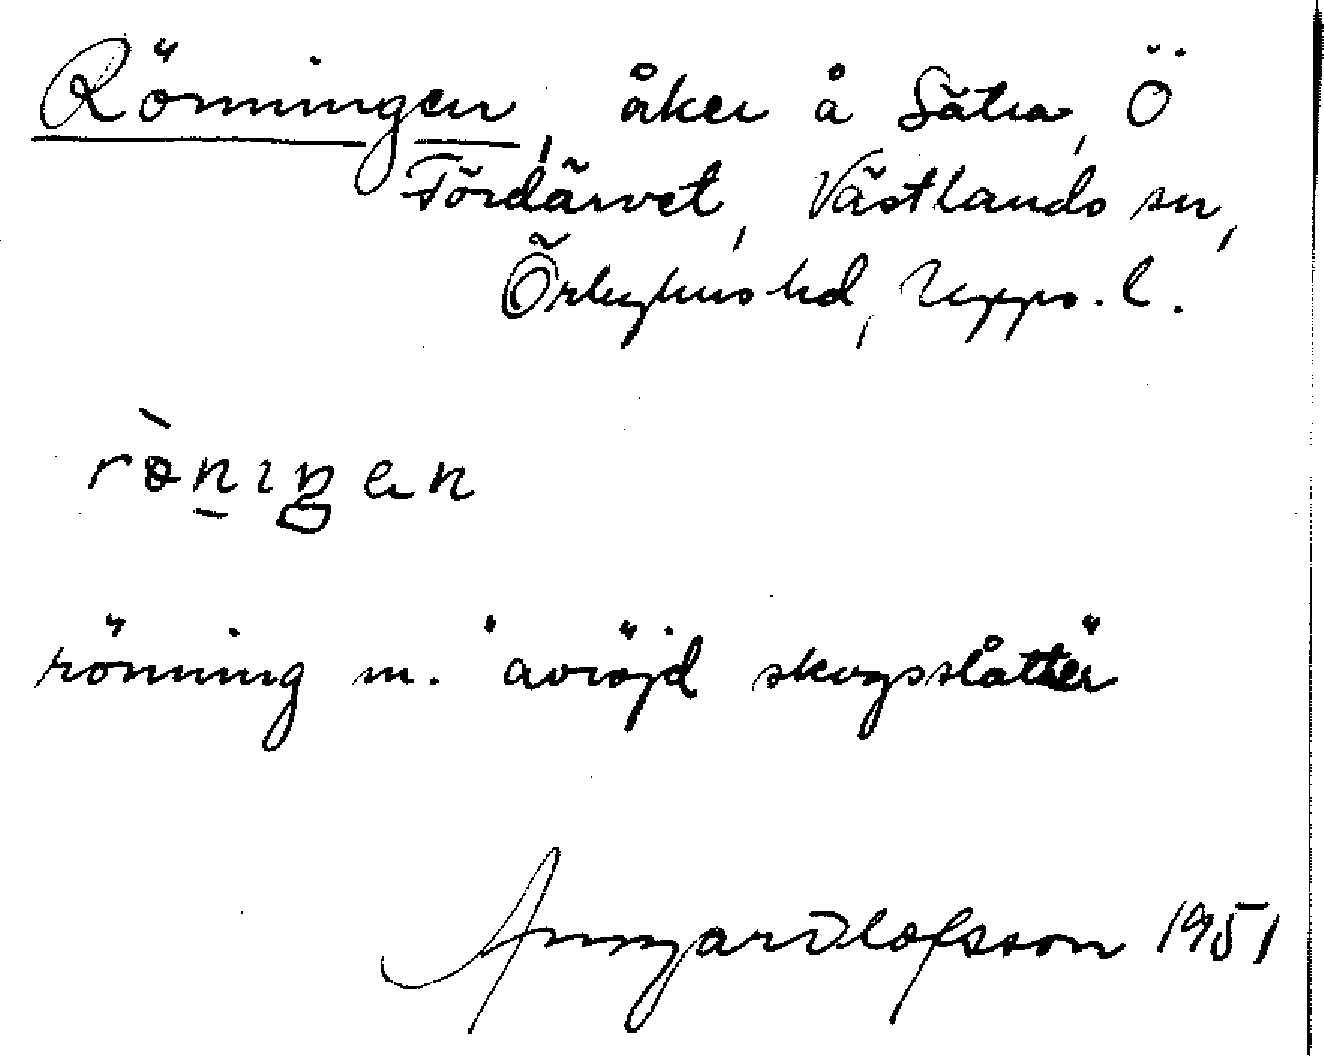 Rönningen, åker å Sätra, Ö
Fördärvet, Västlands sn,
Örbyhus hd, Upps. l.
rö̀niŋen
rönning m. "avröjd skogsslåtter"
Olofsson 1951